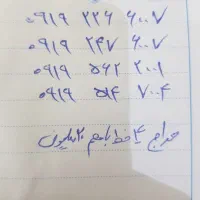 ۰۹۱۹ ۲۲۶ ۶۰۰۷
۰۹۱۹ ۲۴۷ ۶۰۰۷
۰۹۱۹ ۵۶۲ ۲۰۰۱
۰۹۱۹ ۵۱۴ ۷۰۰۴
حراج ۴ خط باهم ۲۰ میلیون